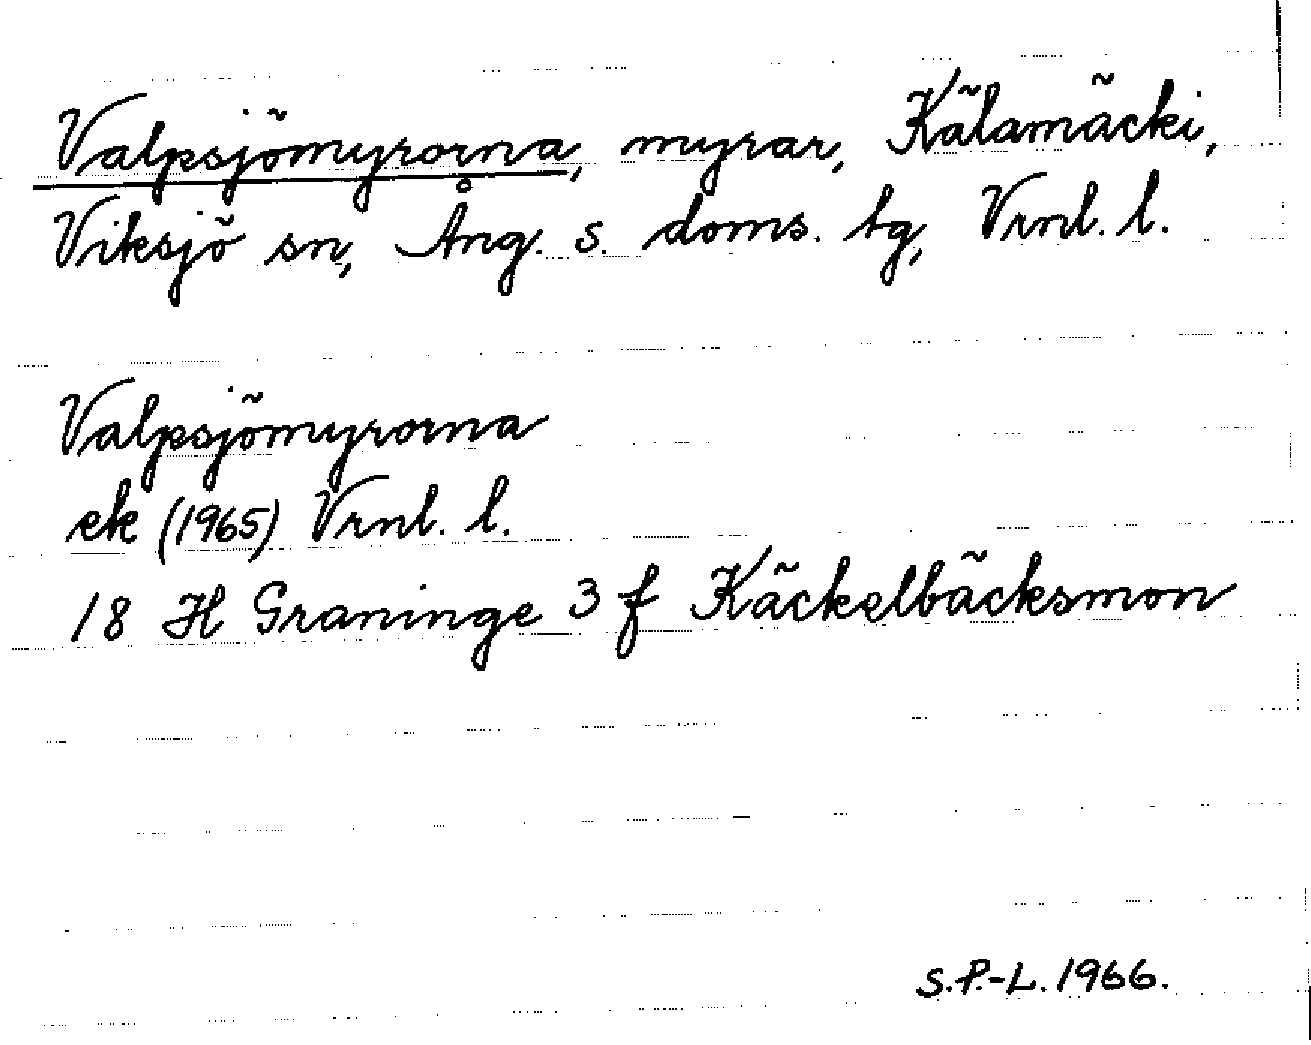 Valpsjömyrorna, myrar, Kälamäcki,
Viksjö sn, Ång. s. doms. tg, Vrnl. l.
Valpsjömyrorna
ek (1965) Vrnl. l.
18 H Graninge 3 f Käckelbäcksmon
S.P.-L. 1966.